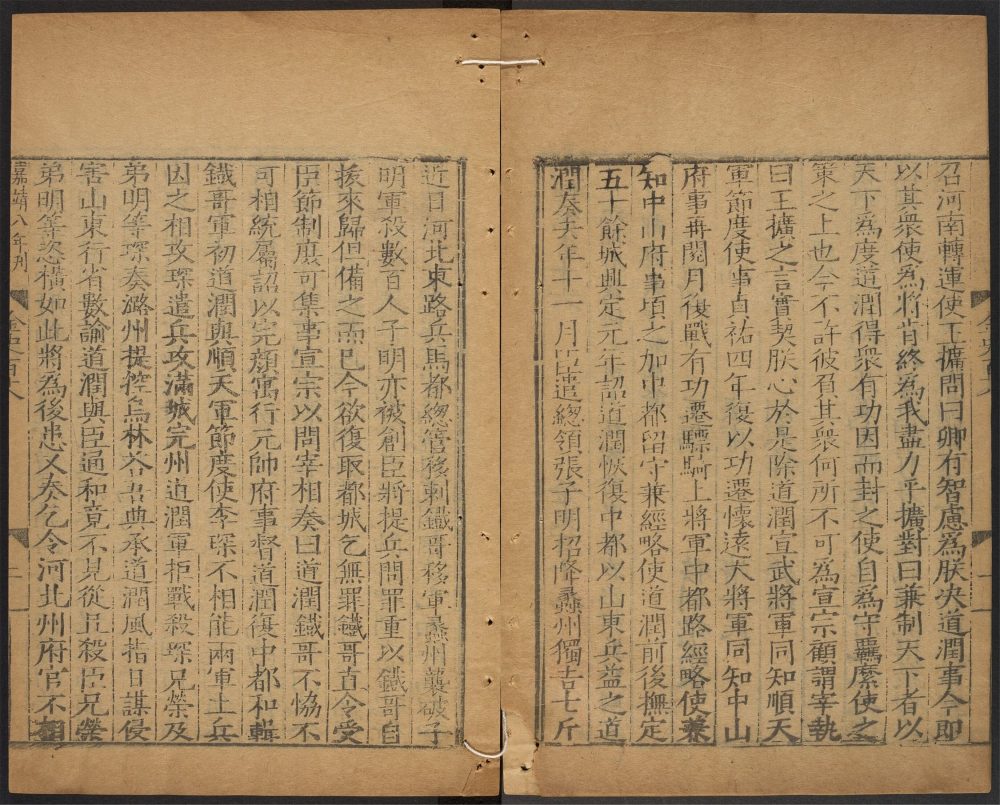 召河南轉運使王擴問曰卿有智慮為朕决道潤事今即
以其衆使為將肯終為我盡力乎擴對曰兼制天下者以
天下為度道潤得衆有功因而封之使自為守羈縻使之
策之上也今不許彼負其衆何所不可為宣宗顧謂宰執
曰王擴之言實契朕心於是除道潤宣武將軍同知順天
軍節度使事貞祐四年復以功遷懷遠大將軍同知中山
府事再閱月復戰有功遷驃騎上將軍中都路經略使兼
知中山府事頃之加中都留守兼經略使道潤前後撫定
五十餘城興定元年詔道潤恢復中都以山東兵益之道
潤奏去年十一月臣遣總領張子明招降蠡州獨吉七斤
近日河北東路兵馬都總管移剌鐵哥移軍蠡州襲破子
明軍殺數百人子明亦被創臣將提兵問罪重以鐵哥自
拔來歸但備之而已今欲復取都城乞無罪鐵哥直令受
臣節制庶可集事宣宗以問宰相奏曰道潤鐵哥不恊不
可相統屬詔以完顏㝢行元帥府事督道潤復中都和輯
鐵哥軍初道潤與順天軍節度使李琛不相能兩軍士兵
因之相攻琛遣兵攻滿城完州道潤軍拒戰殺琛兄榮及
弟明等琛奏潞州提控烏林荅吾典承道潤風指日謀侵
害山東行省數諭道潤與臣通和竟不見從且殺臣兄榮
弟明等恣橫如此將為後患又奏乞令河北州府官不相
嘉靖八年刊